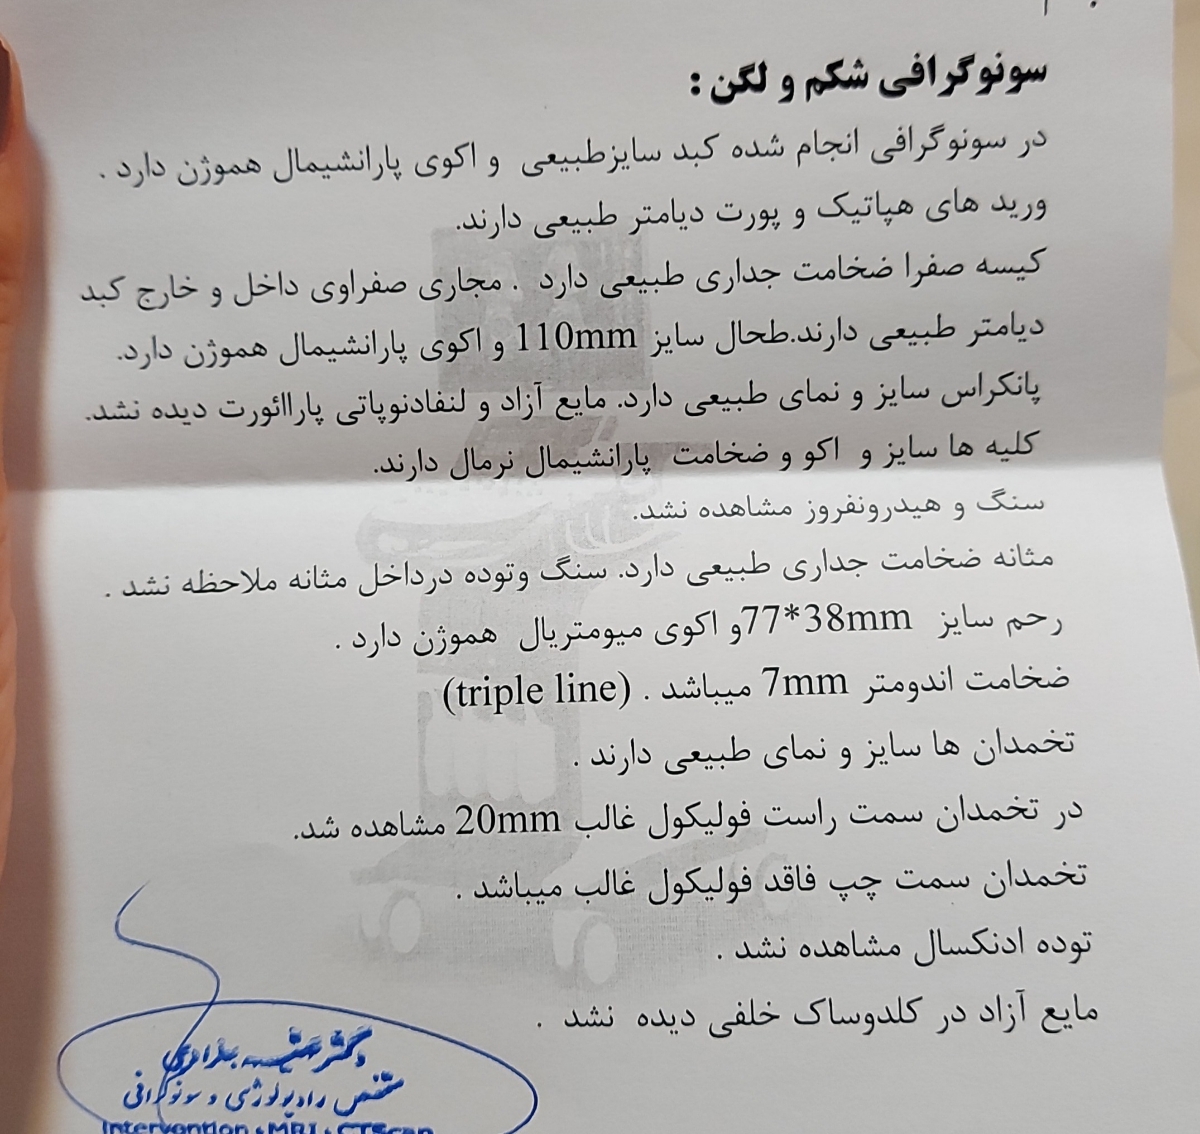 سونوگرافی شکم و لگن :
در سونوگرافی انجام شده کبد سایزطبیعی و اکوی پارانشیمال هموژن دارد .
ورید های هپاتیک و پورت دیامتر طبیعی دارند.
کیسه صفرا ضخامت جداری طبیعی دارد . مجاری صفراوی داخل و خارج کبد
دیامتر طبیعی دارند.طحال سایز 110mm و اکوی پارانشیمال هموژن دارد.
پانکراس سایز و نمای طبیعی دارد. مایع آزاد و لنفادنوپاتی پاراائورت دیده نشد.
کلیه ها سایز و اکو و ضخامت پارانشیمال نرمال دارند.
سنگ و هیدرونفروز مشاهده نشد.
مثانه ضخامت جداری طبیعی دارد. سنگ وتوده درداخل مثانه ملاحظه نشد .
رحم سایز 77*38mmو اکوی میومتریال هموژن دارد .
ضخامت اندومتر 7mm میباشد . (triple line)
تخمدان ها سایز و نمای طبیعی دارند .
در تخمدان سمت راست فولیکول غالب 20mm مشاهده شد.
تخمدان سمت چپ فاقد فولیکول غالب میباشد .
توده ادنکسال مشاهده نشد .
مایع آزاد در کلدوساک خلفی دیده نشد .
دکتر
متخصص رادیولوژی و سونوگرافی
Intervention . MRI . CTScan